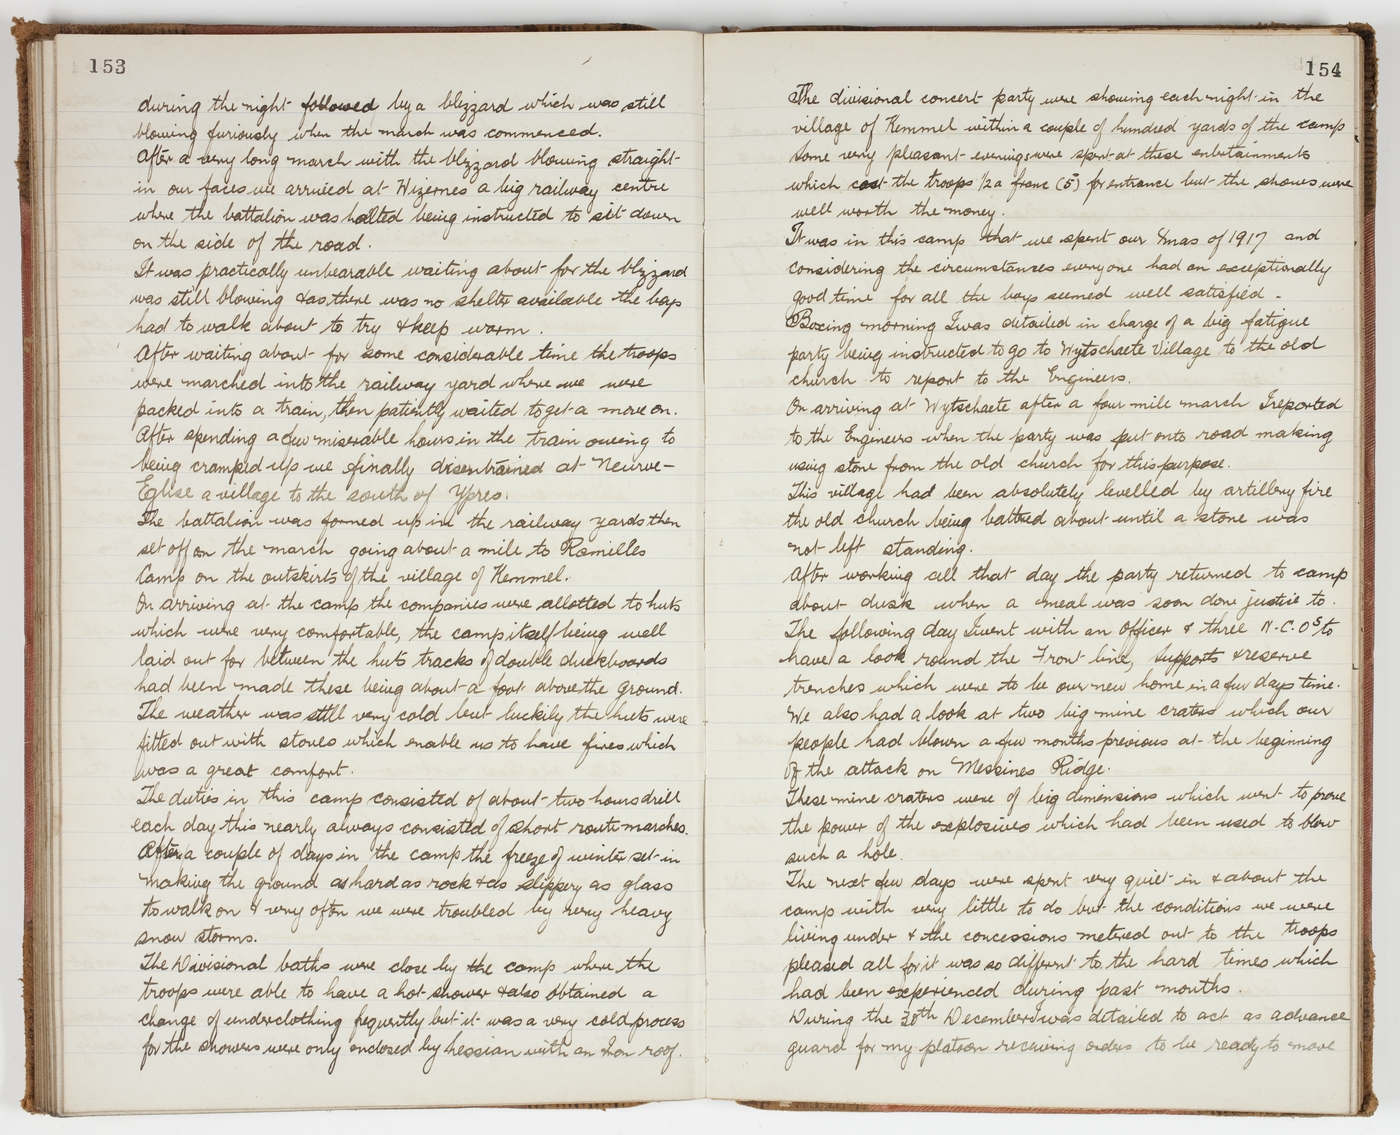 153
during the night followed by a blizzard which was still
blowing furiously when the march was commenced.
After a very long march with the blizzard blowing straight
in our faces we arrived at Wizernes a big railway centre
where the battalion was halted being instructed to sit down
on the side of the road.
It was practically unbearable waiting about for the blizzard
was still blowing & as there was no shelter available the boys
had to walk about to try & keep warm.
After waiting about for some considerable time the troops
were marched into the railway yard where we were
packed into a train, then patiently waited to get a move on.
After spending a few miserable hours in the train owing to
being cramped up we finally disentrained at Neuve-
Eglise a village to the south of Ypres.
The battalion was formed up in the railway yards then
set off on the march going about a mile to Ramilles
Camp on the outskirts of the village of Kemmel.
On arriving at the camp the companies were allotted to huts
which were very comfortable, the camp itself being well
laid out for between the huts tracks of double duckboards
had been made these being about a foot above the ground.
The weather was still very cold but luckily the huts were
fitted out with stoves which enable us to have fires which
was a great comfort.
The duties in this camp consisted of about two hours drill
each day this nearly always consisted of short route marches.
After a couple of days in the camp the freeze of winter set in
making the ground as hard as rock & as slippery as glass
to walk on & very often we were troubled by very heavy
snow storms.
The Divisional baths were close by the camp where the
troops were able to have a hot shower & also obtained a
change of underclothing frequently but it was a very cold process
for the showers were only enclosed by hessian with an Iron roof.
154
The divisional concert party were showing each night in the
village of Kemmel within a couple of hundred yards of the camp
some very pleasant evenings were spent at these entertainments
which cost the troops 1/2 a franc (5d) for entrance but the shows were
well worth the money.
It was in this camp that we spent our Xmas of 1917 and
considering the circumstances everyone had an exceptionally
good time for all the boys seemed well satisfied.
Boxing morning I was detailed in charge of a big fatigue
party being instructed to go to Wytschaete Village to the old
church to report to the Engineers.
On arriving at Wytschaete after a four mile march I reported
to the Engineers when the party was put onto road making
using stone from the old church for this purpose.
This village had been absolutely levelled by artillery fire
the old church being battred about until a stone was
not left standing.
After working all that day the party returned to camp
about dusk when a meal was soon done justice to.
The following day I went with an Officer & three N.C.Os to
have a look round the Front line, supports & reserve
trenches which were to be our new home in a few days time.
We also had a look at two big mine craters which our
people had blown a few months previous at the beginning
of the attack on Messines Ridge.
These mine craters were of big dimensions which went to prove
the power of the explosives which had been used to blow
such a hole.
The next few days were spent very quiet in & about the
camp with very little to do but the conditions we were
living under & the concessions metered out to the troops
pleased all for it was so different to the hard times which
had been experienced during past months.
During the 30th December I was detailed to act as advance
guard for my platoon receiving orders to be ready to move